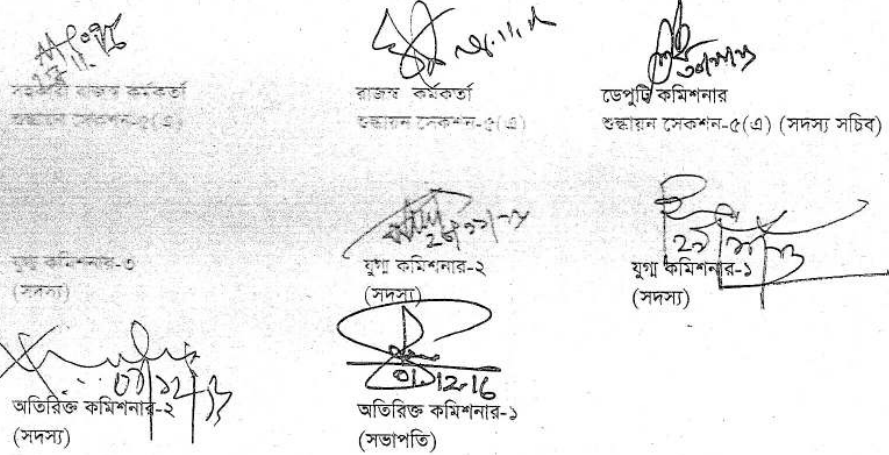 সহকারী রাজস্ব কর্মকর্তা
শুল্কায়ন সেকশন-৫(এ)
রাজস্ব কর্মকর্তা
শুল্কায়ন সেকশন-৫(এ)
ডেপুটি কমিশনার
শুল্কায়ন সেকশন-৫(এ) (সদস্য সচিব)
যুগ্ম কমিশনার-৩
(সদস্য)
যুগ্ম কমিশনার-২
(সদস্য)
যুগ্ম কমিশনার-১
(সদস্য)
অতিরিক্ত কমিশনার-২
(সদস্য)
01.12.16
অতিরিক্ত কমিশনার-১
(সভাপতি)